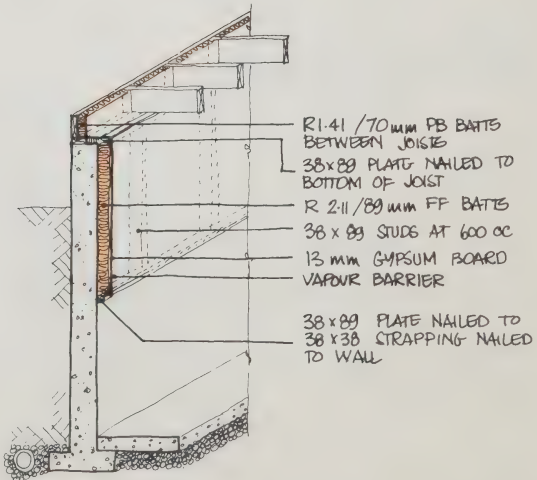 R1.41 / 70 mm PB BATTS
BETWEEN JOISTS
38 x 89 PLATE NAILED TO
BOTTOM OF JOIST
R 2.11 / 89 mm FF BATTS
38 x 89 STUDS AT 600 OC
13 mm GYPSUM BOARD
VAPOUR BARRIER
38 x 89 PLATE NAILED TO
38 x 38 STRAPPING NAILED
TO WALL